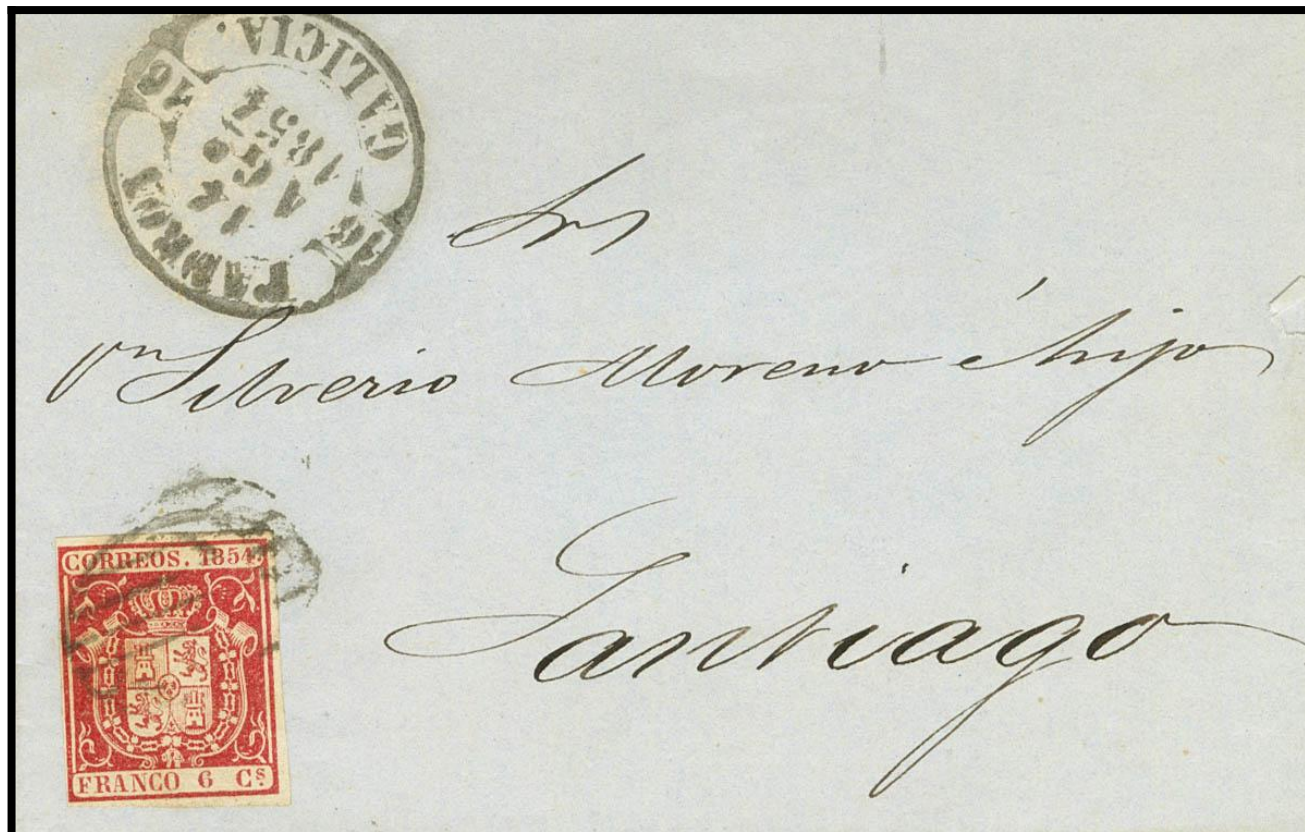 PADRON
16 16
14
AGº
1854
GALICIA.
Srs
Dn Silverio Moreno é hijo
Santiago
CORREOS. 1854.
FRANCO 6 Cs.